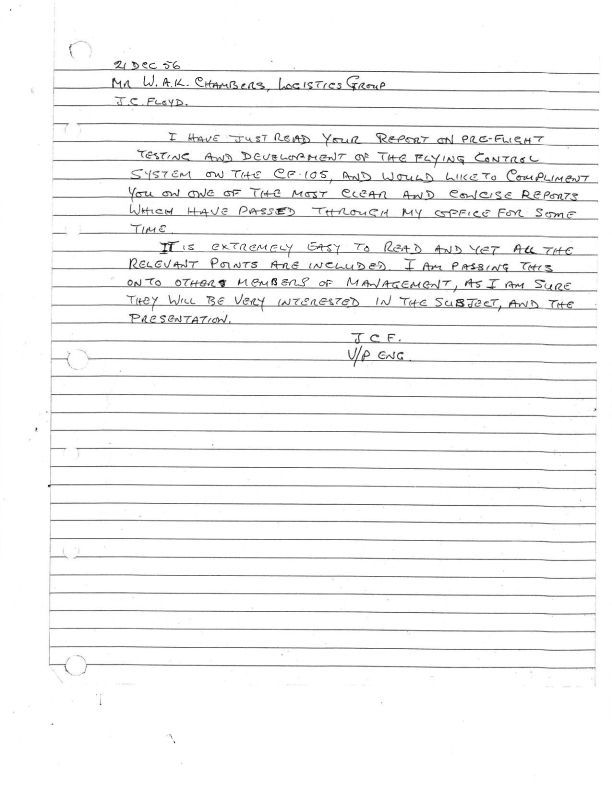 21 DEC 56
MR W.A.K. CHAMBERS, LOGISTICS GROUP
J.C. FLOYD.
I HAVE JUST READ YOUR REPORT ON PRE-FLIGHT
TESTING AND DEVELOPMENT OF THE FLYING CONTROL
SYSTEM ON THE CF-105, AND WOULD LIKE TO COMPLIMENT
YOU ON ONE OF THE MOST CLEAR AND CONCISE REPORTS
WHICH HAVE PASSED THROUGH MY OFFICE FOR SOME
TIME.
IT IS EXTREMELY EASY TO READ AND YET ALL THE
RELEVANT POINTS ARE INCLUDED. I AM PASSING THIS
ONTO OTHERS MEMBERS OF MANAGEMENT, AS I AM SURE
THEY WILL BE VERY INTERESTED IN THE SUBJECT, AND THE
PRESENTATION.
J C F.
V/P ENG.